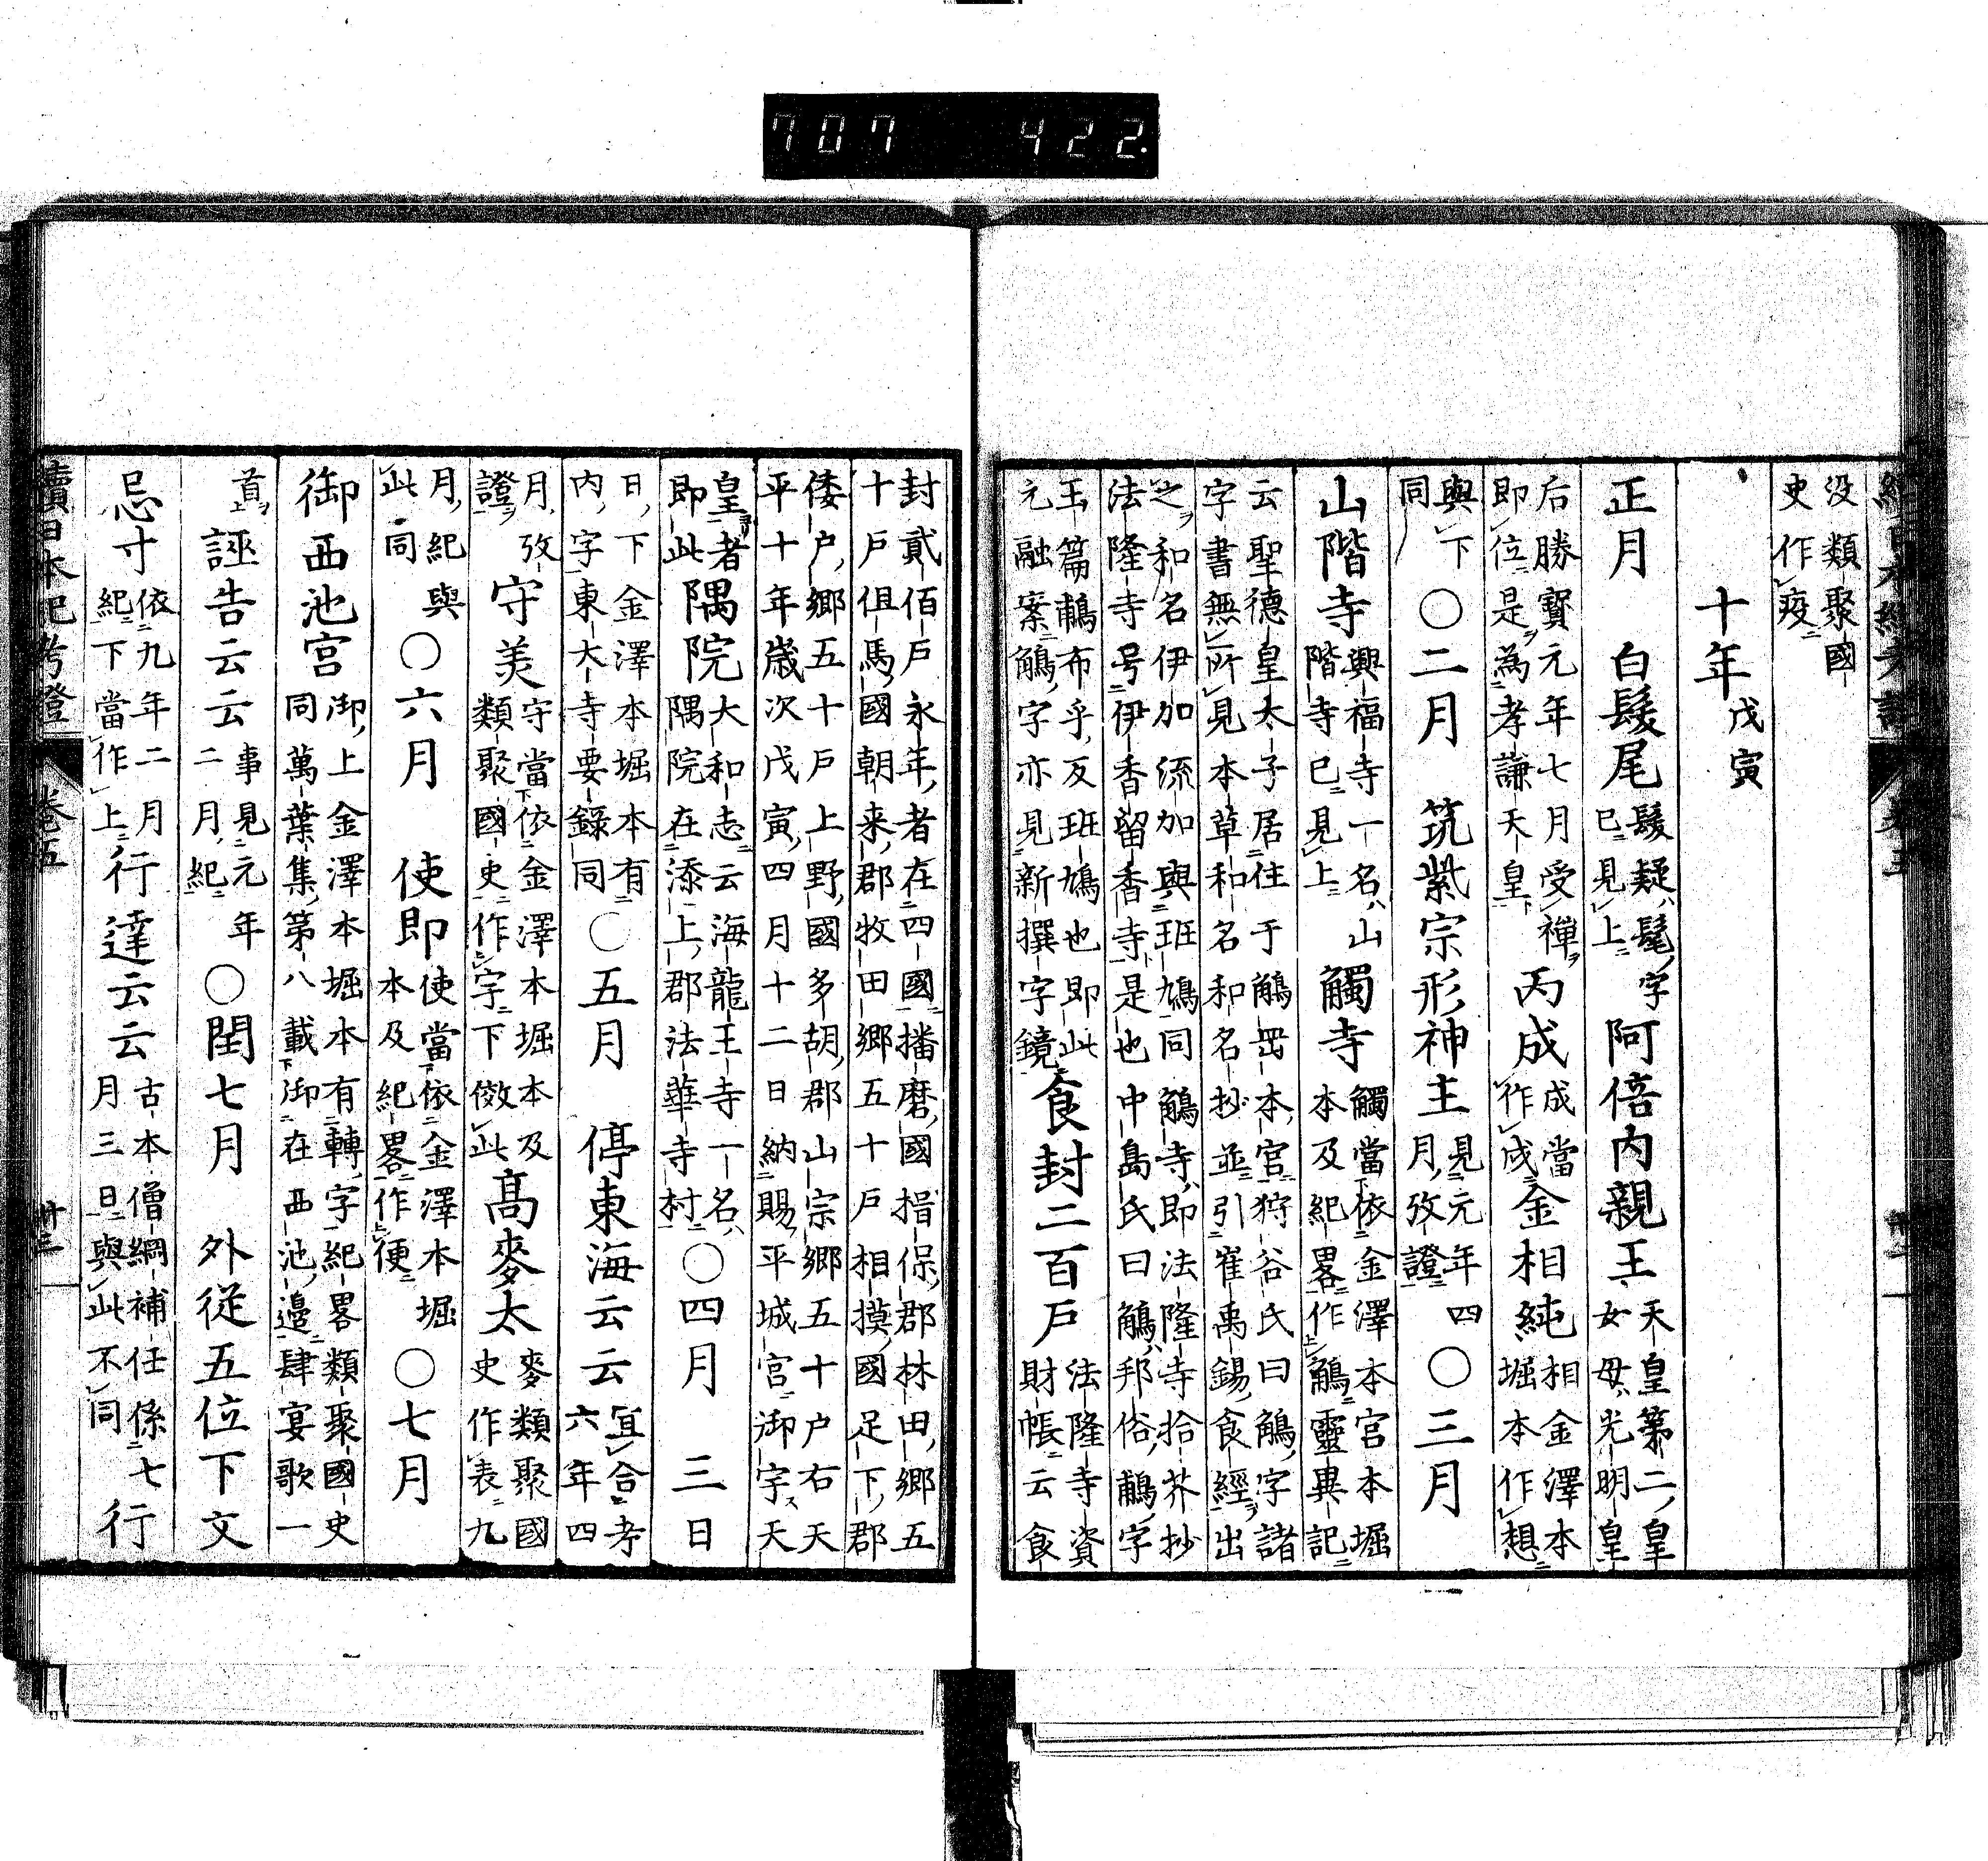 707 422
没類聚國
史作疫
十年戊寅
正月 白髮尾髮疑髦字
已見上 阿倍内親王天皇第二皇
女母光明皇
后勝寶元年七月受禪
即位是為孝謙天皇 丙成成當
作戌 金相純相金澤本
堀本作想
與下
同 〇二月 筑紫宗形神主見元年四
月攷證 〇三月
山階寺興福寺一名山
階寺已見上 觸寺觸當依金澤本宮本堀
本及紀畧作鵤靈異記
云聖德皇太子居住于鵤岡本宮狩谷氏曰鵤字諸
字書無所見本草和名和名抄並引崔禹錫食經出
之和名伊加流加與班鳩同鵤寺即法隆寺拾芥抄
法隆寺号伊香留香寺是也中島氏曰鵤邦俗鶄字
玉篇鶄布乎反班鳩也即此
元融案鵤字亦見新撰字鏡 食封二百戸法隆寺資
財帳云食
封貳佰戸永年者在四國播磨國揖保郡林田郷五
十戸但馬國朝来郡牧田郷五十戸相摸國足下郡
倭戸郷五十戸上野國多胡郡山宗郷五十户右天
平十年歳次戊寅四月十二日納賜平城宮御字天
皇者
即此 隅院大和志云海龍王寺一名
隅院在添上郡法華寺村 〇四月 三日
日下金澤本堀本有
内字東大寺要録同 〇五月 停東海云云宜合考
六年四
月攷
證 守美守當依金澤本堀本及
類聚國史作字下倣此 髙麥太麥類聚國
史作表九
月紀與
此同 〇六月 使即使當依金澤本堀
本及紀畧作便 〇七月
御西池宮御上金澤本堀本有轉字紀畧類聚國史
同萬葉集第八載御在西池邊肆宴歌一
首 誣告云云事見元年
二月紀 〇閏七月 外從五位下文
忌寸依九年二月
紀下當作上 行達云云古本僧綱補任係七
月三旦與此不同 行
續日本紀考證 卷五 卅三